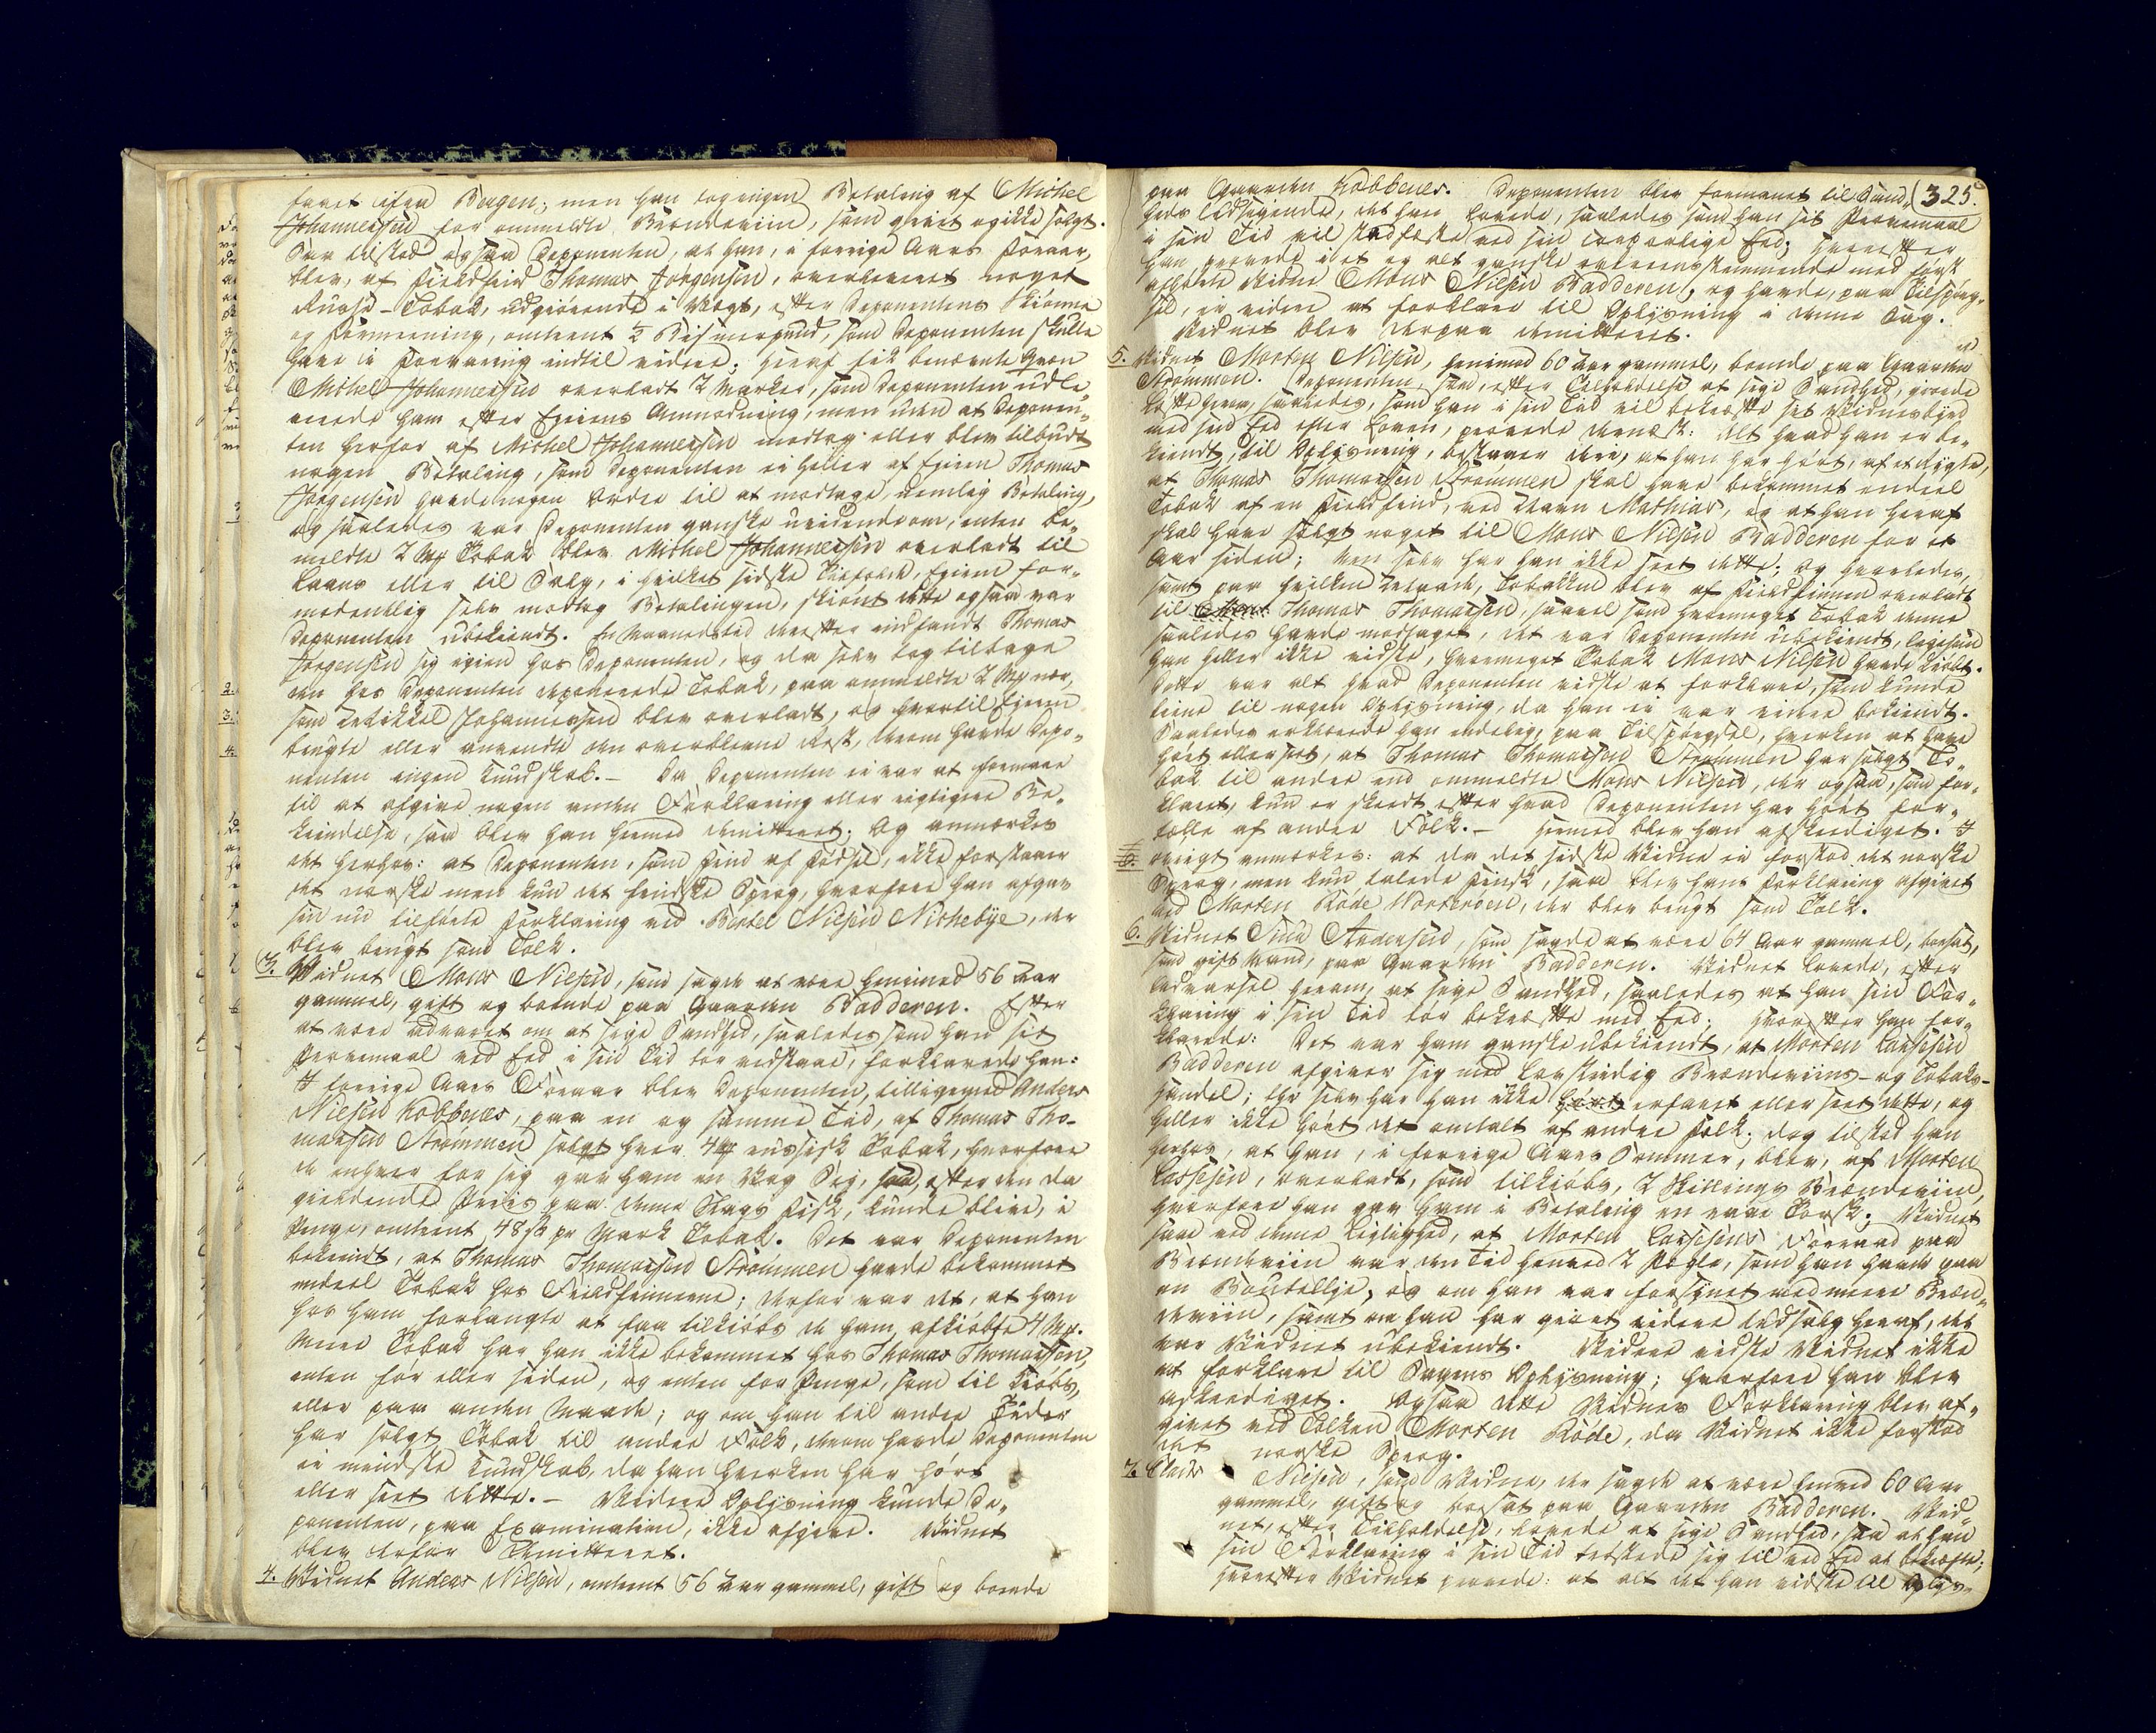 faret ifra Bergen; men han tog ingen Betaling af Michel
Johannessen for ommeldte Brændeviin, som givet og ikke solgt.
Saa tilstod ogsaa Deponenten, at han, i forrige Aars Foraar,
blev, af Fieldfind Thomas Jørgensen, overleveret noget
Russe-Tobak, udgiørende i Vægt, efter Deponentens Skiønne
og Formeening, omtrent ½ Bismerpund, som Deponenten skulle
have i Forvaring indtil videre; hieraf fik benævnte Qvæn
Michel Johannessen overladt 2 Marker, som Deponenten udle„
verede ham efter Eierens Anmodning, men uden at Deponen„
ten herfor af Michel Johannessen modtog eller blev tilbudt
nogen Betaling, som Deponenten ei heller af Eieren Thomas
Jørgensen havde nogen Ordre til at modtage, nemlig Betaling,
og saaledes var Deponenten ganske uvidende om, enten be„
meldte 2 Mk Tobak blev Michel Johannessen overladt til
Laans eller til Salg, i hvilket sidste Tilfælde, Eieren for„
modentlig selv modtog Betalingen, skiønt dette ogsaa var
Deponenten ubekiendt. En Maanedstid derefter indfandt Thomas
Jørgensen sig igien hos Deponenten, og da selv tog tilbage
den hos Deponenten deponerede Tobak, paa ommeldte 2 Mk nær,
som Michel Johannessen blev overladt, og hvortil Eieren
brugte eller anvendte den overblevne Rest, derom havde Depo„
nenten ingen Kundskab. – Da Deponenten ei var at formaae
til at afgive nogen anden Forklaring eller rigtigere Be„
kiendelse, saa blev han hermed demitteret; Og anmærkes
det herhos: at Deponenten, som Find af Fødsel, ikke forstaaer
det norske men kun det findske Sprog, hvorfore han afgav
sin nu tilførte Forklaring ved Bertel Nilsen Nischebye, der
blev brugt som Tolk.
3. Vidnet Mons Nilsen, som sagde at være henimod 56 Aar
gammel, gift og boende paa Gaarden Badderen. Efter
at være advaret om at sige Sandhed, saaledes som han sit
Provemaal ved Eed i sin Tid tør vedstaae, forklarede han:
I forrige Aars Foraar blev Deponenten, tilligemed Anders
Nilsen Kobbenes, paa en og samme Tid, af Thomas Tho„
maesen Strømmen solgt hver 4 Mk russisk Tobak, hvorfore
de enhver for sig gav ham en Vog Sei, som, efter den da
gieldende Priis paa denne Slags Fisk, kunde blive, i
Penge, omtrent 48 sk pr Mark Tobak. Det var Deponenten
bekiendt, at Thomas Thomaesen Strømmen havde bekommet
endeel Tobak hos Fieldfinnerne; derfor var det, at han
hos ham forlangte at faa tilkiøbs de ham afkiøbte 4 Mk.
Mere Tobak har han ikke bekommet hos Thomas Thomaesen,
enten før eller siden, og enten for Penge, som til Kiøbs,
eller paa anden Maade; og om han til andre Tider
har solgt Tobak til andre Folk, derom havde Deponenten
ei mindste Kundskab, da han hverken har hørt
eller seet dette. – Videre Oplysning kunde De„
ponenten, paa Examination, ikke afgive. Vidnet
blev derfor demitteret.
4. Vidnet Anders Nilsen, omtrent 56 Aar gammel, gift og boende
325.
paa Gaarden Kobbenes. Deponenten blev formanet til Sand„
heds Udsigende, det han lovede, saaledes som han sit Provemaal
i sin Tid vil stadfæste ved sin corporlige Eed; hvorefter
han provede i et og alt ganske overeensstemmende med først
afhørte Vidne Mons Nilsen Badderen, og havde, paa Tilspørg„
sel, ei videre at forklare til Oplysning i denne Sag.
Vidnet blev derpaa demitteret.
5. Vidnet Morten Nilsen, henimod 60 Aar gammel, boende paa Gaarden
Strømmen. Deponenten, som, efter Tilholdelse at sige Sandhed, giorde
Løfte herom, saaledes, som han i sin Tid vil bekræfte sit Vidnesbyrd
med sin Eed efter Loven, provede dernæst: Alt hvad han er be„
kiendt, til Oplysning, bestaaer deri, at han har hørt, af et Rygte,
at Thomas Thomaesen Strømmen skal have bekommet endeel
Tobak af en Fieldfind, ved Navn Mathias, og at han heraf
skal have solgt noget til Mons Nilsen Badderen for et
Aar siden; Men selv har han ikke seet dette; og hvorledes,
samt paa hvilken Maade, Tobakken blev af Fieldfinnen overladt
til Thomas Thomaesen, saavel som hvormeget Tobak denne
saaledes havde modtaget, det var Deponenten ubekiendt, ligesom
han heller ikke vidste, hvormeget Tobak Mons Nilsen havde kiøbt.
Dette var alt hvad Deponenten vidste at forklare, som kunde
tiene til nogen Oplysning, da han ei var videre bekiendt.
Saaledes erklærede han endelig, paa Tilspørgsel, hverken at have
hørt eller seet, at Thomas Thomaesen Strømmen har solgt To„
bak til andre end ommeldte Mons Nilsen, der ogsaa, som for„
klaret, kun er skeedt efter hvad Deponenten har hørt for„
tælle af andre Folk. – Hermed blev han afskediget. I
øvrigt anmærkes: at da det sidste Vidne ei forstod det norske
Sprog, men kun talede Finsk, saa blev hans Forklaring afgivet
ved Morten Røde, der blev brugt som Tolk.
6. Vidnet Simen Andersen, som sagde at være 64 Aar gammel, bosat,
som gift Mand, paa Gaarden Badderen. Vidnet lovede, efter
Advarsel herom, at sige Sandhed, saaledes at han sin For„
klaring i sin Tid tør bekræfte med Eed; Hvorefter han for„
klarede: Det var ham ganske ubekiendt, at Morten Larsesen
Badderen afgiver sig med lovstridig Brændeviins- og Tobaks-
handel; thi selv har han ikke erfaret eller seet dette, og
heller ikke hørt det omtalt af andre Folk; dog tilstod han
herhos, at han, i forrige Aars Sommer, blev, af Morten
Larsesen, overladt, som tilkiøbs, 2 Skillings Brændeviin,
hvorfore han gav ham i Betaling en rae Torsk. Vidnet
saae ved denne Leilighed, at Morten Larsesens Forraad paa
Brændeviin var den Tid henved 2 Pægle, som han havde paa
en Boutellje, og om han var forsynet med mere Bræn„
deviin, samt om han har givet videre Udsalg heraf, det
var Vidnet ubekiendt. Videre vidste Vidnet ikke
at forklare til Sagens Oplysning; hvorfore han blev
afskediget. Ogsaa dette Vidnes Forklaring blev af„
givet ved Tolken Morten Røde, da Vidnet ikke forstod
det norske Sprog.
7. Nilsen, som Vidne, der sagde at være henved 60 Aar
gammel, gift og bosat paa Gaarden Badderen. Vid„
net, efter Tilholdelse, lovede at sige Sandhed, saa at han
sin Forklaring i sin Tid trøstede sig til ved Eed at bekræfte;
hvorefter Vidnet provede: at alt det han vidste til Oplys„